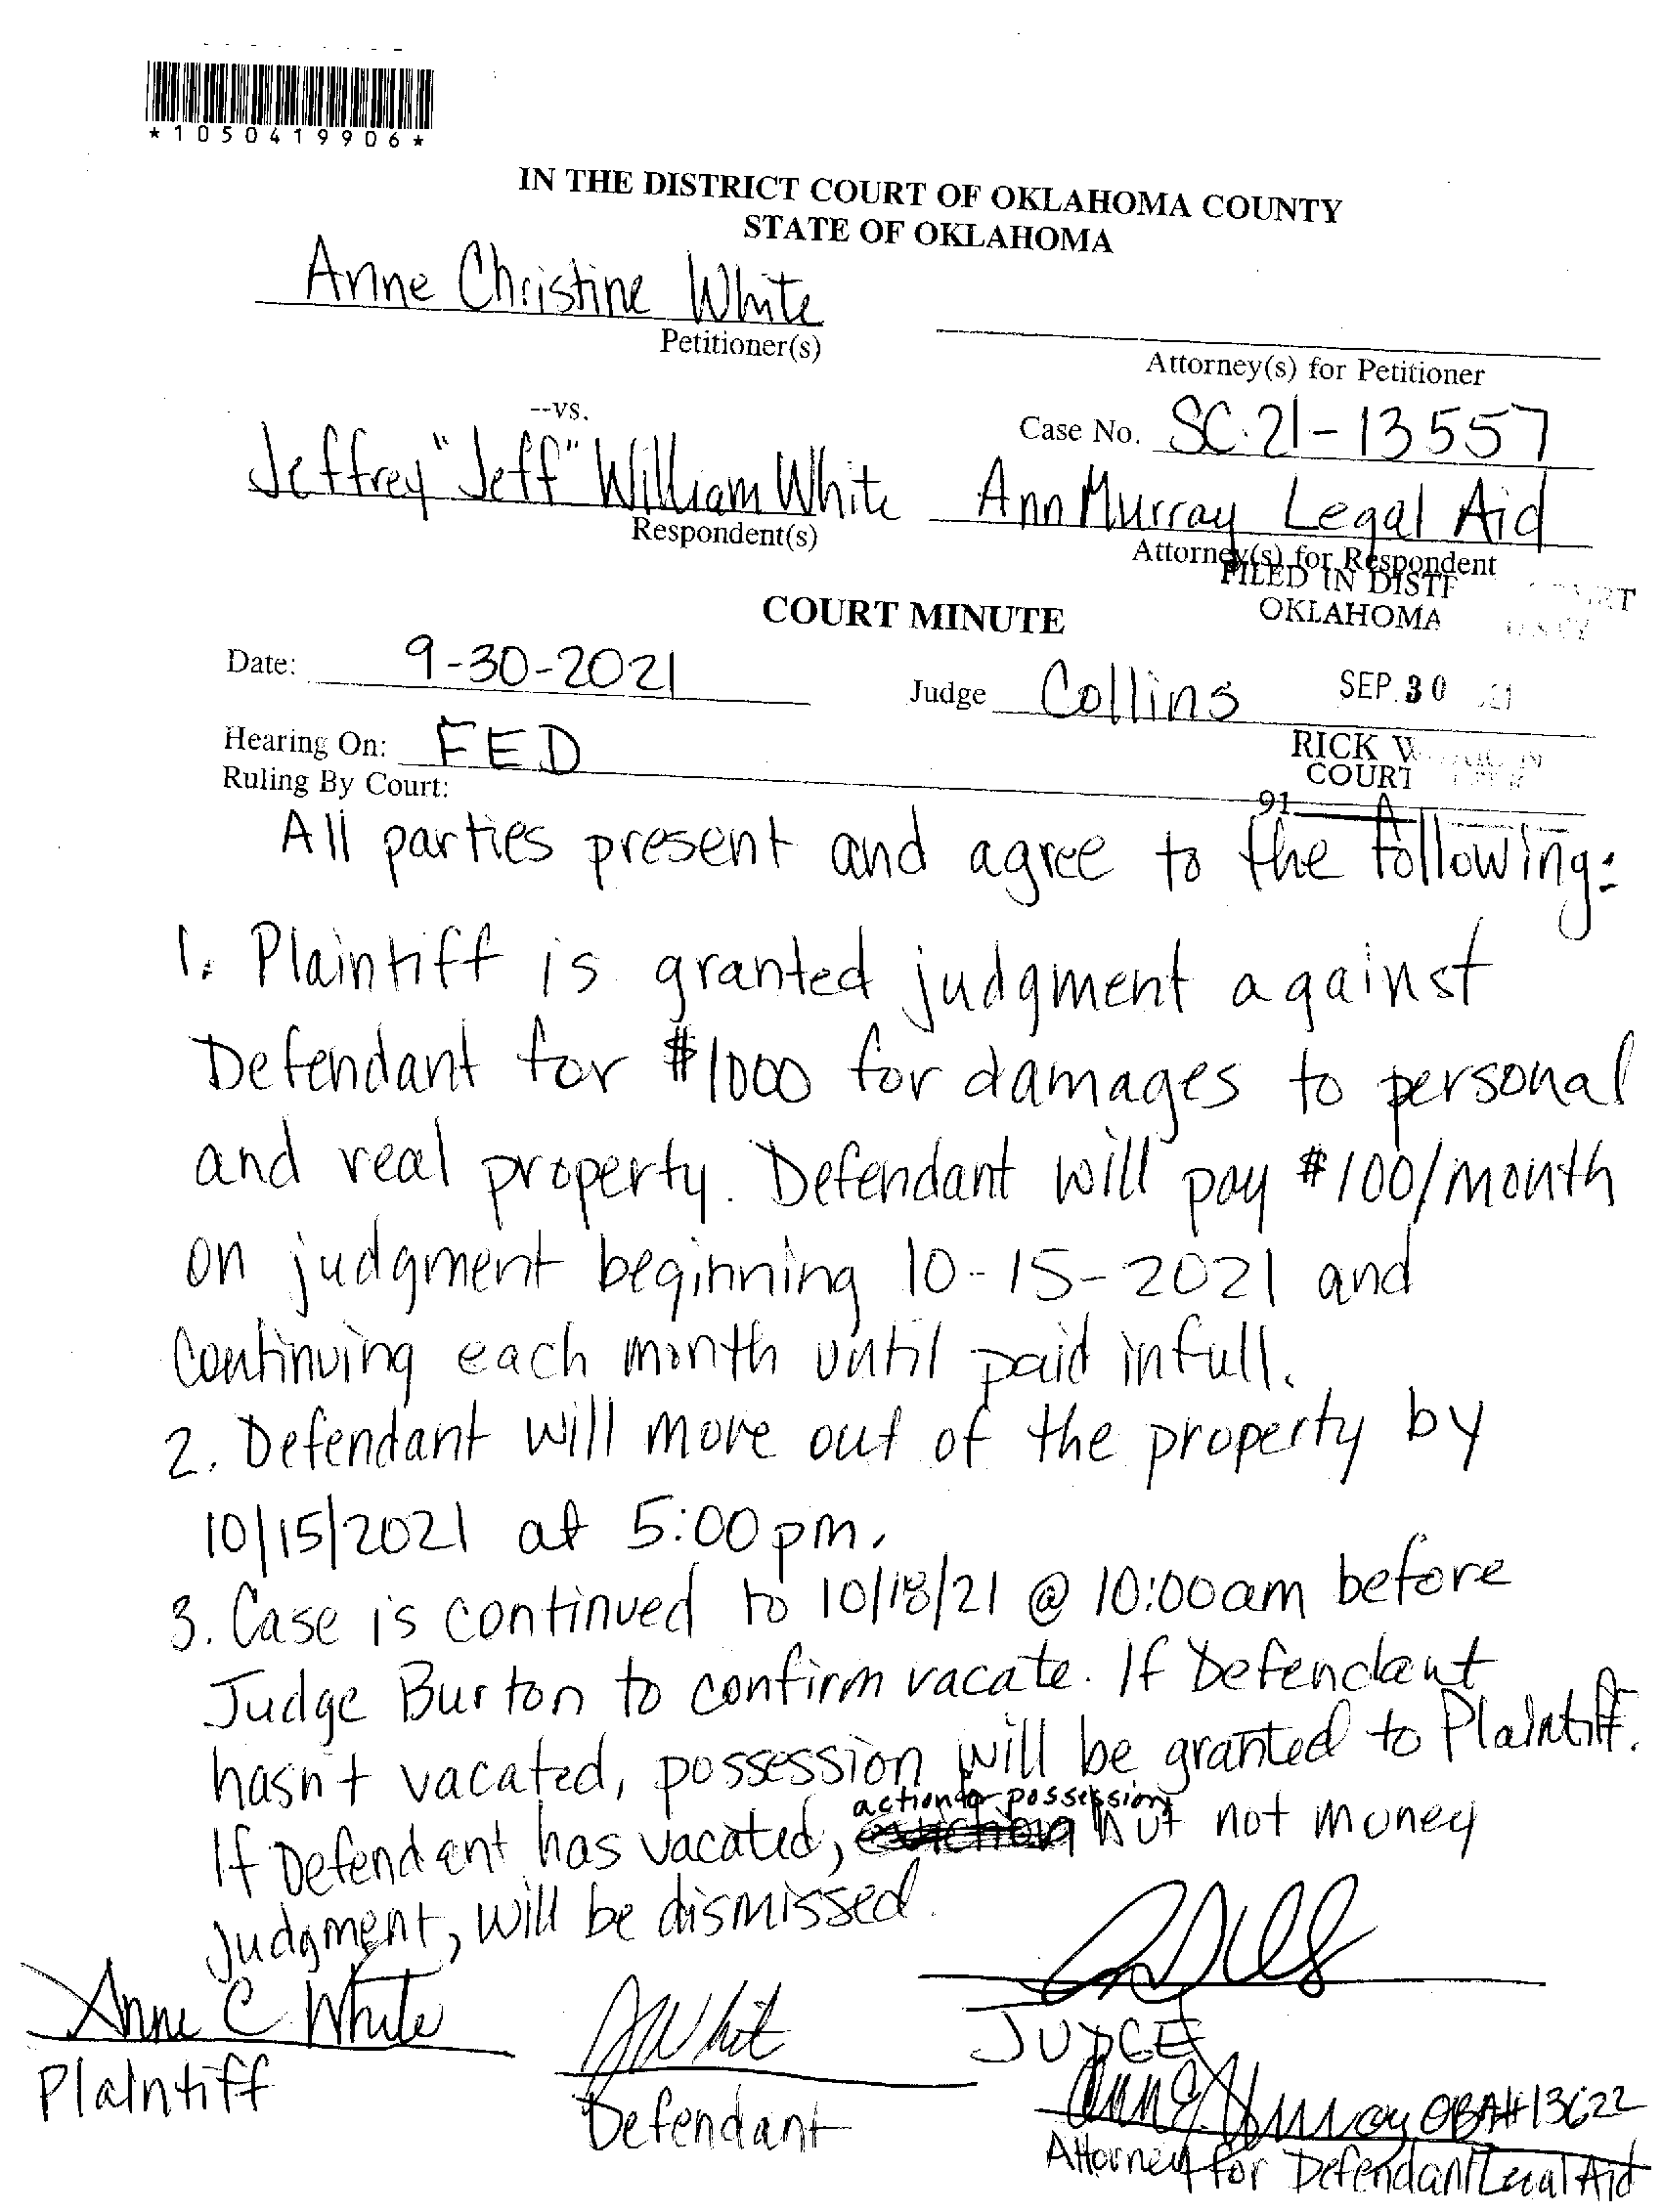 *1050419906*
IN THE DISTRICT COURT OF OKLAHOMA COUNTY
STATE OF OKLAHOMA
Anne Christine White
Petitioner(s)
Attorney(s) for Petitioner
--vs.
Case No. SC-21-13557
Jeffrey "Jeff" William White
Ann Murray Legal Aid
Respondent(s)
Attorney(s) for Respondent
FILED IN DIST
OKLAHOMA
COURT MINUTE
Date: 9-30-2021
Judge Collins
SEP 30 21
Hearing On: FED
RICK W
COURT
Ruling By Court:
91
All parties present and agree to the following:
1. Plaintiff is granted judgment against
Defendant for $1000 for damages to personal
and real property. Defendant will pay $100/month
on judgment beginning 10-15-2021 and
Continuing each month until paid in full.
2. Defendant will move out of the property by
10/15/2021 at 5:00 pm.
3. Case is continued to 10/18/21 @ 10:00am before
Judge Burton to confirm vacate. If Defendant
hasn't vacated, possession will be granted to Plaintiff.
action for possession
If Defendant has vacated, eviction but not money
judgment, will be dismissed.
Anne C White
Plaintiff
JWhit
Defendant
JUDGE
Ann E. Murray OBA# 13622
Attorney for Defendant Legal Aid